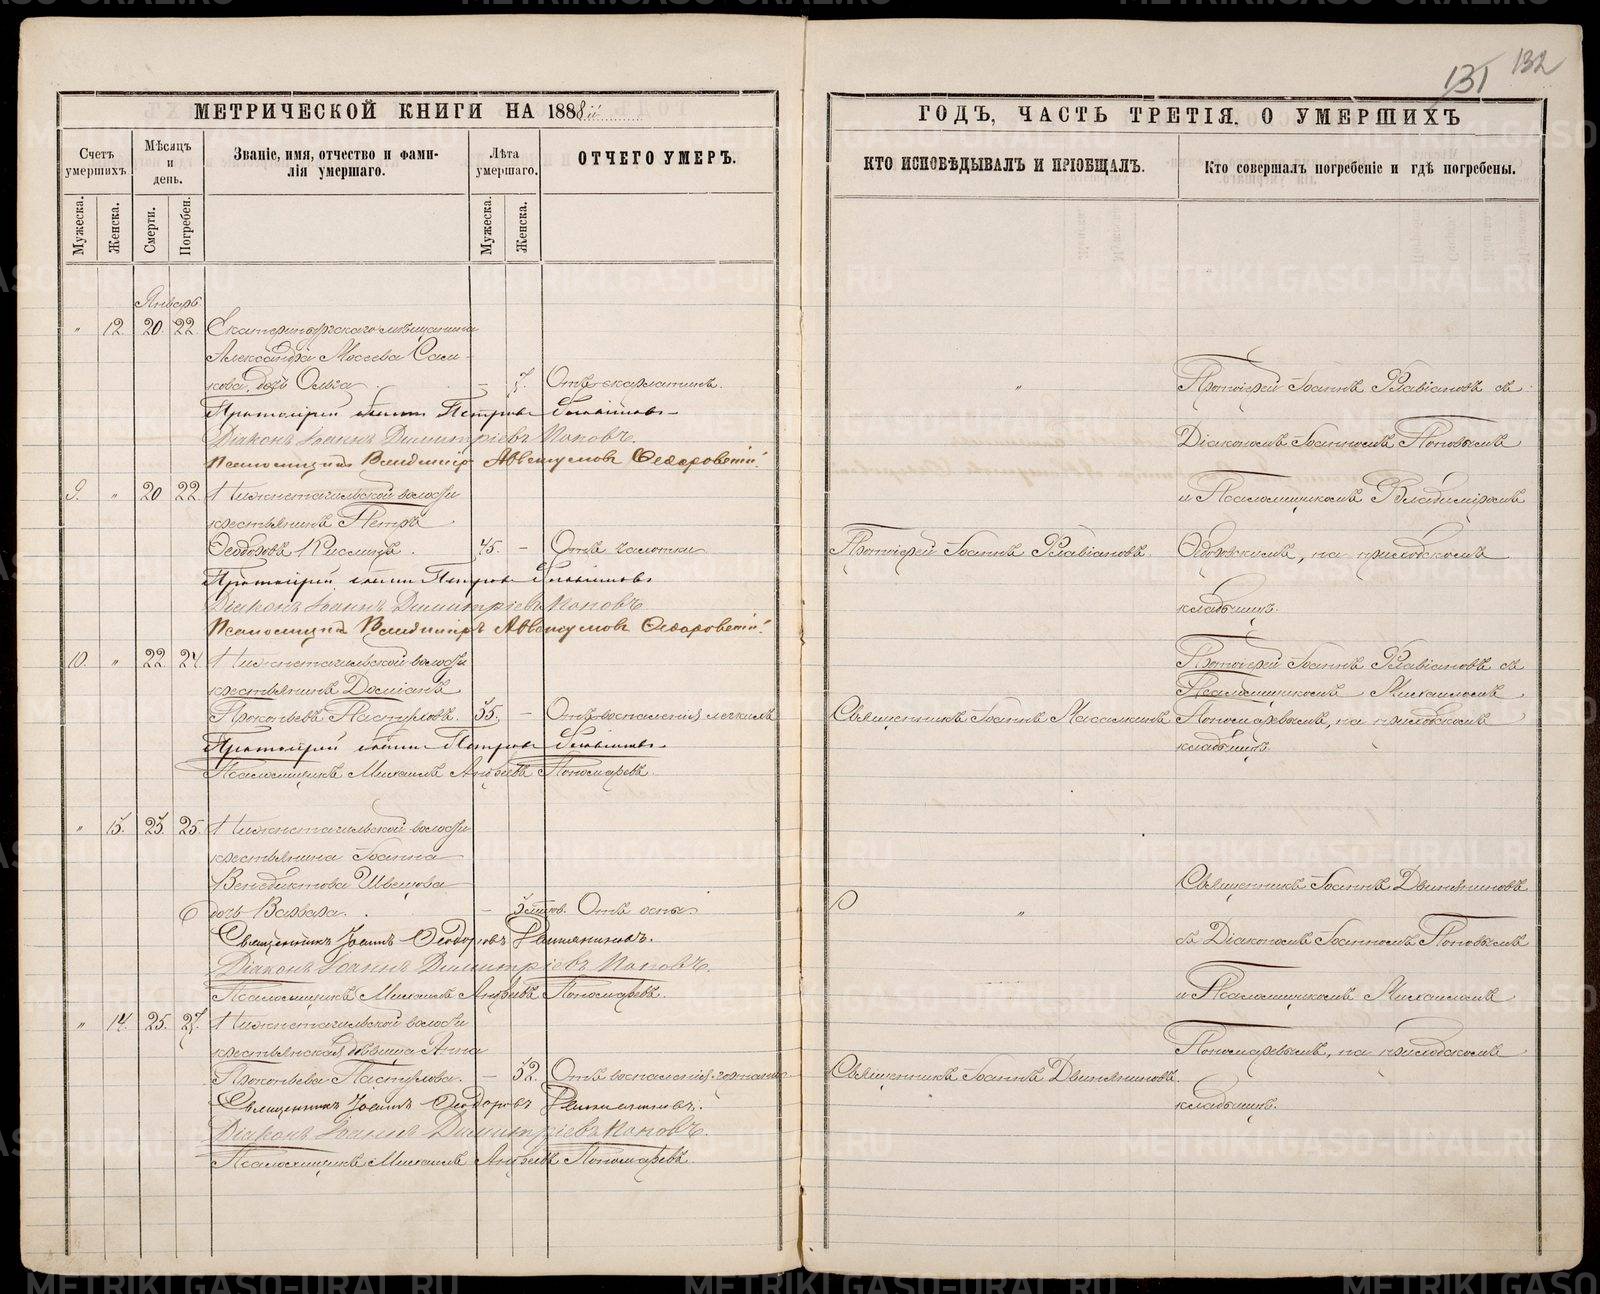 131 132
МЕТРИЧЕСКОЙ КНИГИ НА 1888й
ГОДЪ, ЧАСТЬ ТРЕТІЯ, О УМЕРШИХЪ
Счетъ умершихъ.
Мѣсяцъ и день.
Званіе, имя, отчество и фамилія умершаго.
Лѣта умершаго.
ОТЧЕГО УМЕРЪ.
КТО ИСПОВѢДЫВАЛЪ И ПРІОБЩАЛЪ.
Кто совершалъ погребеніе и гдѣ погребены.
Мужеска. Женска. Смерти. Погребен. Мужеска. Женска.
Январь
" 12. 20. 22. Екатеринбургскаго мѣщанина
Александра Мосеева
дочь Ольга. – 7. Отъ скарлатины. "
Протоіерей Петровъ
Діаконъ Іоаннъ Димитріевъ Поповъ.
Псаломщикъ Владиміръ Аввакумовъ Ѳедоровскій.
9. " 20 22. Нижнетагильской волости
крестьянинъ Петръ
Ѳеодоровъ Кислицъ. 45. – Отъ чахотки Протоіерей Іоаннъ Флавіановъ.
Протоіерей Петровъ
Діаконъ Іоаннъ Димитріевъ Поповъ
Псаломщикъ Владиміръ Аввакумовъ Ѳедоровскій.
10. " 22. 24. Нижнетагильской волости
крестьянинъ Даміанъ
Прокопьевъ Пастуховъ. 55. – Отъ воспаленія легкихъ Священникъ Іоаннъ
Протоіерей Петровъ
Псаломщикъ Михаилъ Андреевъ Пономаревъ.
" 13. 23. 25. Нижнетагильской волости
крестьянина Іоанна
Венедиктова Швецова
дочь Варвара. – Отъ оспы "
Священникъ Іоаннъ Ѳеодоровъ
Діаконъ Іоаннъ Димитріевъ Поповъ.
Псаломщикъ Михаилъ Андреевъ Пономаревъ.
" 14. 25. 27. Нижнетагильской волости
крестьянская дѣвица Анна
Прокопьева Пастухова. – 52. Отъ воспаленія гортани Священникъ Іоаннъ Двиняниновъ.
Священникъ Іоаннъ Ѳеодоровъ
Діаконъ Іоаннъ Димитріевъ Поповъ.
Псаломщикъ Михаилъ Андреевъ Пономаревъ.
Протоіерей Іоаннъ Флавіановъ съ
Діакономъ Іоанномъ Поповымъ
и Псаломщикомъ Владиміромъ
Ѳедоровскимъ, на приходскомъ
кладбищѣ.
Протоіерей Іоаннъ Флавіановъ съ
Псаломщикомъ Михаиломъ
Пономаревымъ, на приходскомъ
кладбищѣ.
Священникъ Іоаннъ Двиняниновъ
съ Діакономъ Іоанномъ Поповымъ
и Псаломщикомъ Михаиломъ
Пономаревымъ, на приходскомъ
кладбищѣ.
METRIKI.GASO-URAL.RU